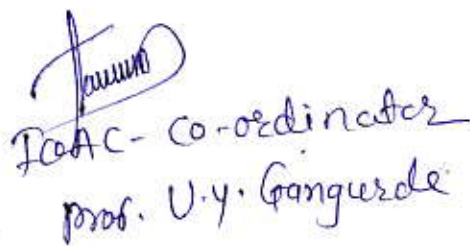 IQAC - Co-ordinator
prof. U.Y. Gangurde